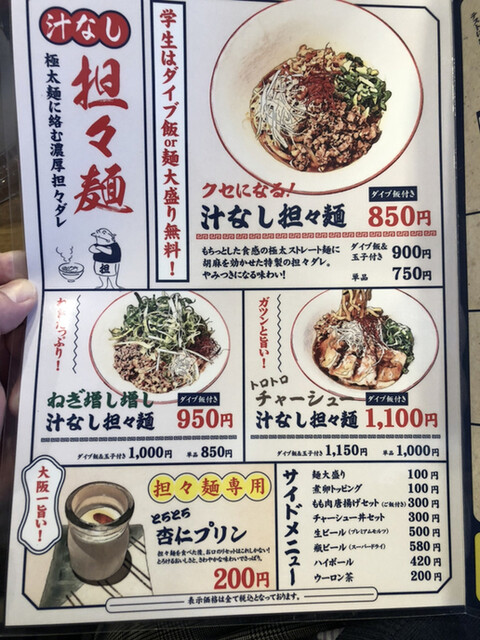 汁なし
担々麺
極太麺に絡む濃厚担々ダレ
担
学生はダイブ飯or麺大盛り無料！
クセになる！
ダイブ飯付き
汁なし担々麺 850円
もちっとした食感の極太ストレート麺に
胡麻を効かせた特製の担々ダレ。
やみつきになる味わい！
ダイブ飯&玉子付き 900円
単品 750円
たっぷり！
ねぎ増し増し
ダイブ飯付き
汁なし担々麺 950円
ダイブ飯&玉子付き 1,000円 単品 850円
ガツンと旨い！
トロトロ
チャーシュー
ダイブ飯付き
汁なし担々麺 1,100円
ダイブ飯&玉子付き 1,150円 単品 1,000円
大阪一旨い！
担々麺専用
とろとろ
杏仁プリン
担々麺を食べた後、お口のリセットはこれしかない！
とろけるおいしさと、さわやかな味わいでさっぱり。
200円
サイドメニュー
麺大盛り 100円
煮卵トッピング 100円
もも肉唐揚げセット(ご飯付き) 300円
チャーシュー丼セット 300円
生ビール(プレミアムモルツ) 500円
瓶ビール(スーパードライ) 580円
ハイボール 420円
ウーロン茶 200円
表示価格は全て税込となっております。